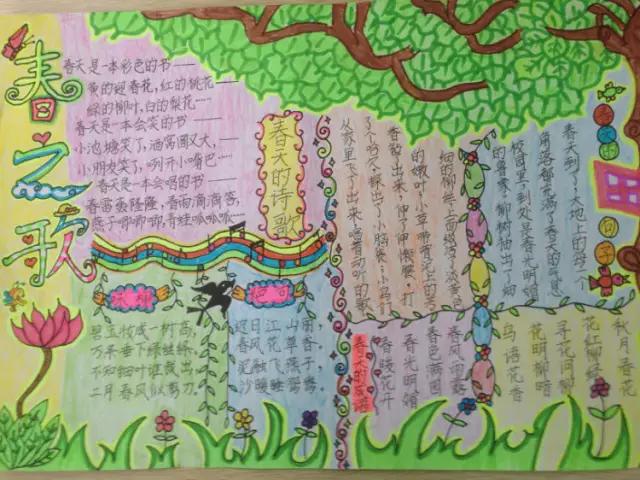 春之歌
春天是一本彩色的书——
黄的迎春花,红的桃花——
绿的柳叶,白的梨花……
春天是一本会笑的书——
小池塘笑了,酒窝圆又大,——
小朋友笑了,咧开小嘴巴……
春天是一本会唱的书——
春雷轰隆隆,春雨滴滴答,
燕子唧唧唧,青蛙呱呱呱…
春天的诗歌
咏柳
碧玉妆成一树高,
万条垂下绿丝绦。
不知细叶谁裁出,
二月春风似剪刀。
绝句
迟日江山丽,
春风花草香。
泥融飞燕子,
沙暖睡鸳鸯。
春天的句子
春天到了,大地上的每一个
角落都充满了春天的气息
校园里,到处是春光明媚
的景象,柳树抽出了细
细的柳丝,上面缀着淡黄色
的嫩叶,小草带着
香,散了出来,伸了伸懒腰,打
了个哈欠,探出了小脑袋;小鸟们
从家里飞了出来,唱着动听的歌
春天的成语
秋月春花
花红柳绿
寻花问柳
花明柳暗
鸟语花香
春风
春色满园
春光明媚
春暖花开